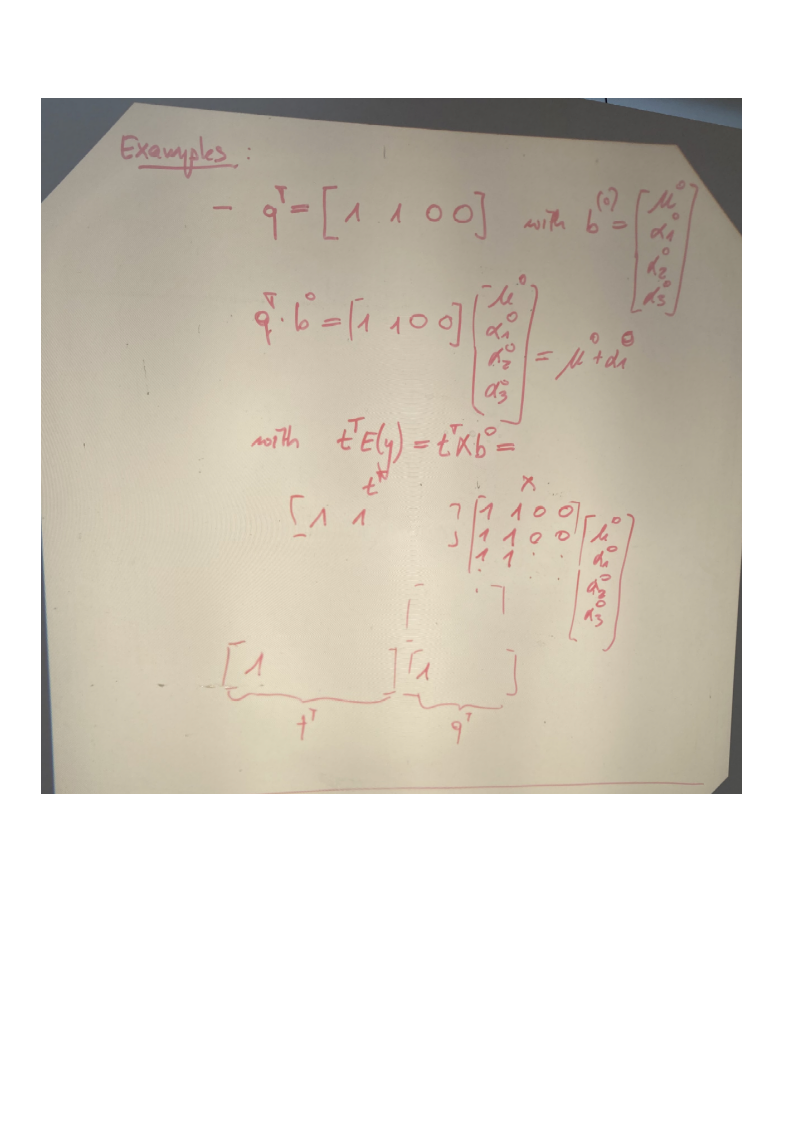 Examples :
- qᵀ = [ 1 1 0 0 ] with b⁽⁰⁾ = [ μ⁰ α₁⁰ α₂⁰ α₃⁰ ]
qᵀ · b⁰ = [ 1 1 0 0 ] [ μ⁰ α₁⁰ α₂⁰ α₃⁰ ] = μ⁰ + α₁⁰
with tᵀE(y) = tᵀXb⁰ =
tᵀ X
[ 1 1 ] [ 1 1 0 0 ] [ μ⁰
1 1 0 0 α₁⁰
1 1 . . α₂⁰
α₃⁰ ]
[ ]
[ 1 ] [ 1 ]
tᵀ qᵀ